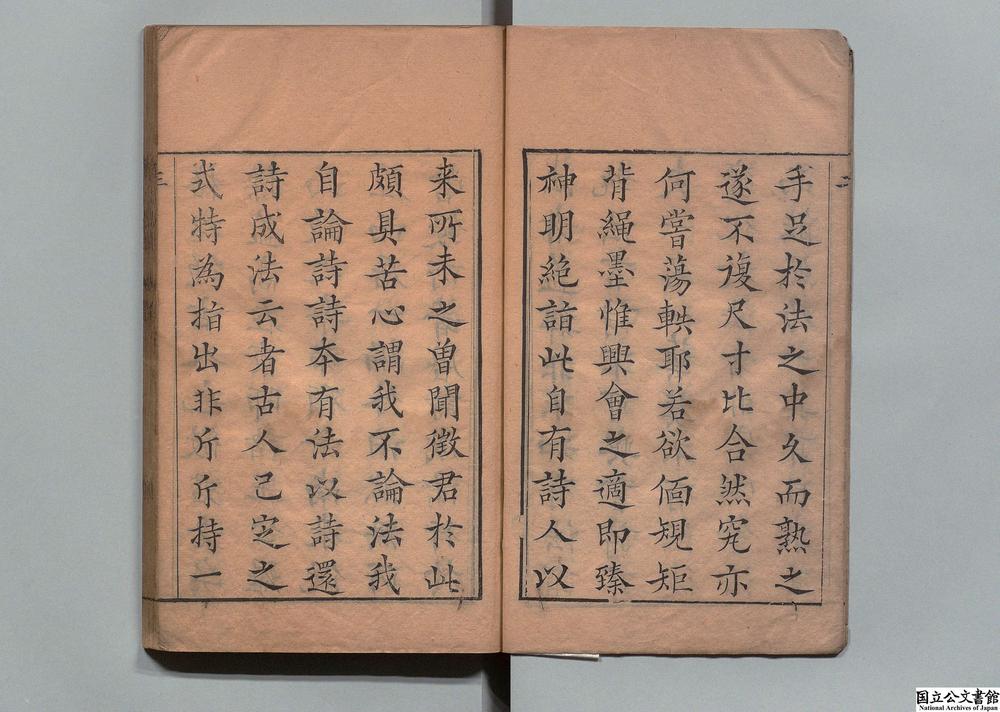 手足於法之中久而熟之
遂不復尺寸比合然究亦
何嘗蕩軼耶若欲偭規矩
背繩墨惟興會之適即臻
神明絕詣此自有詩人以
来所未之曽聞徵君於此
頗具苦心謂我不論法我
自論詩詩夲有法以詩還
詩成法云者古人已定之
式特為指出非斤斤持一
二
三
国立公文書館
National Archives of Japan